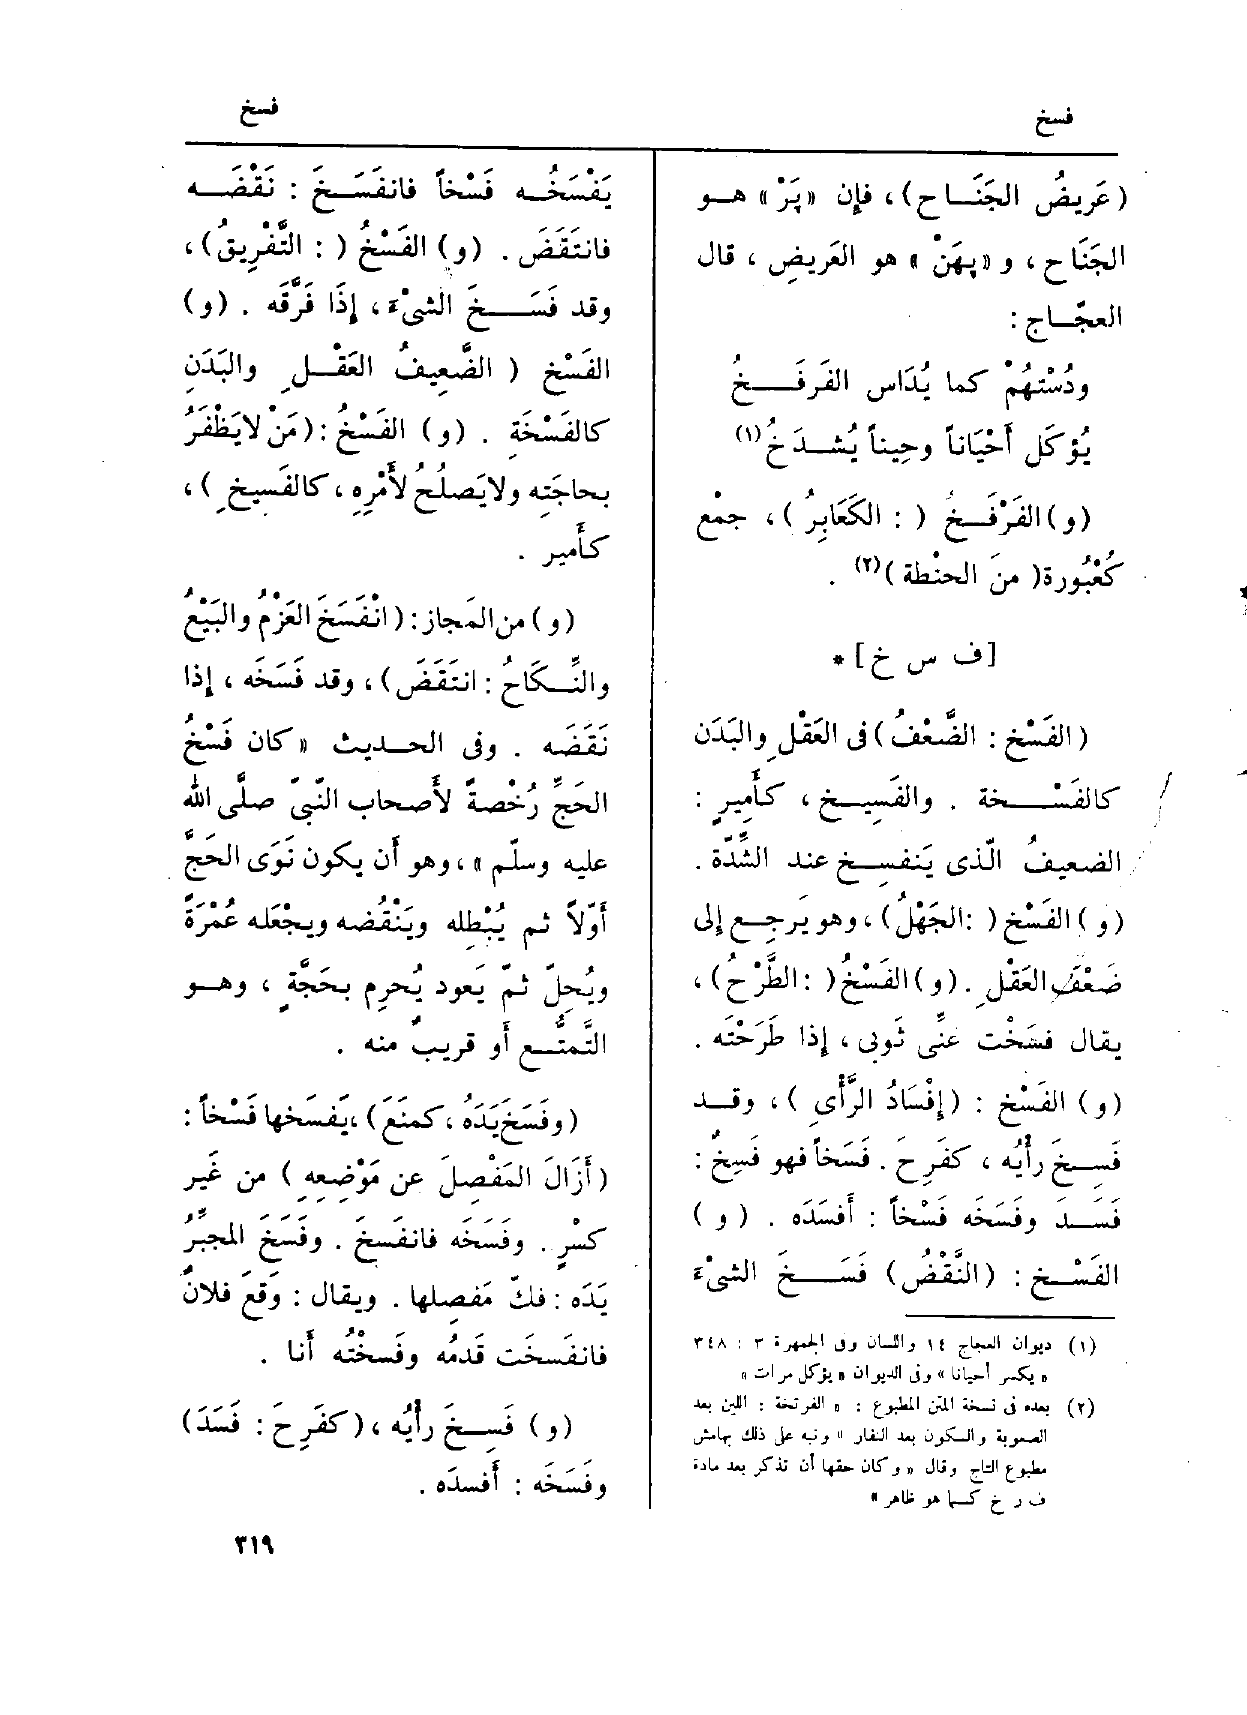 فسخ
فسخ
(عَرِيضُ الجَنَـاح)، فإن «پَرْ» هـو
الجَنَاح، و«پهَنْ» هو العَرِيض، قال
العجّـاج:
ودُسْتهُمْ كما يُدَاس الفَرفَـخُ
يُؤكَل أَحْيَاناً وحِيناً يُشـدَخُ(١)
(و) الفَرْفَـخُ ( : الكَعَابِرُ)، جمْع
كُعْبُورة( منَ الحنْطة)(٢) .
[ف س خ] *
(الفَسْخ : الضَّعْفُ) فى العَقْلِ والبَدَن
كالفَسْـخة . والفَسِيـخ، كأَمِيرٍ :
الضعيفُ الّذى يَنفسِـخ عند الشّدّة .
(و) الفَسْخ ( :الجَهْلُ)، وهو يَرجِـع إلى
ضَعْف العَقْلِ . (و) الفَسْخُ ( :الطَّرْحُ)،
يقال فسَخْت عنِّى ثَوبى، إذا طَرَحْتَه .
(و) الفَسْخ : (إِفْسَادُ الرَّأْىِ)، وقـد
فَسِـخَ رأْيُه، كفَرِحَ . فَسَخاً فهو فَسِخٌ :
فَسَـد وفَسَخَه فَسْخاً : أَفسَدَه . (و)
الفَسْـخ : (النَّقْضُ) فَسَـخَ الشىْءَ
(١) ديوان العجاج ١٤ واللسان وفى الجمهرة ٣ : ٣٤٨
« يكسر أحيانا » وفى الديوان « يؤكل مرات »
(٢) بعده فى نسخة المتن المطبوع : « الفرتخة : اللين بعد
الصعوبة والسكون بعد النفار » ونبه على ذلك بهامش
مطبوع التاج وقال « وكان حقها أن تذكر بعد مادة
ف ر خ كـما هو ظاهر »
يَفْسَخُـه فَسْخاً فانفَسَـخَ : نَقْضَـه
فانتَقَضَ . (و) الفَسْخُ ( : التَّفْرِيقُ)،
وقد فَسَـخَ الشىْءَ، إِذَا فَرَّقَه . (و)
الفَسْخ ( الضَّعِيفُ العَقْـلِ والبَدَنِ
كالفَسْخَةِ . (و) الفَسْخُ :(مَنْ لايَظْفَرُ
بحاجَتِه ولايَصلُحُ لأَمْرِه، كالفَسِيخِ)،
كأَمير .
(و) من المَجاز : (انْفَسَخَ العَزْمُ والبَيْعُ
والنِّـكَاحُ : انتَقَضَ)، وقد فَسَخَه، إذا
نَقَضَه . وفى الحـديث «كان فَسْخُ
الحَجِّ رُخْصةً لأَصحاب النّبىّ صلَّى الله
عليه وسلّم»، وهو أَن يكون نَوَى الحَجَّ
أَوّلاً ثم يُبْطِله ويَنْقُضه ويجْعَله عُمْرَةً
ويُحِلّ ثمّ يَعود يُحرِم بحَجَّةٍ، وهـو
التَّمتُّـع أَو قريبٌ منه .
(وفَسَخَ يَدَه، كمنَعَ)، يَفسَخها فَسْخاً :
(أَزَالَ المَفْصِلَ عن مَوْضِعِه) من غَير
كسْرٍ . وفَسَخَه فانفَسخَ . وفَسَخَ المجبِّرُ
يَدَه : فَكّ مَفصِلها . ويقال : وَقَعَ فلانٌ
فانفَسخَت قَدمُه وفَسخْتُه أَنا .
(و) فَسِـخَ رأْيُه، (كفَرِحَ : فَسَدَ)
وفَسَخَه : أَفسدَه .
٣١٩